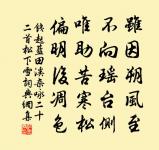 雖因朔風至
不向瑤台側
唯助苦寒松
偏明後凋色
錢起藍田溪雜詠二十
二首松下雪詞典網書